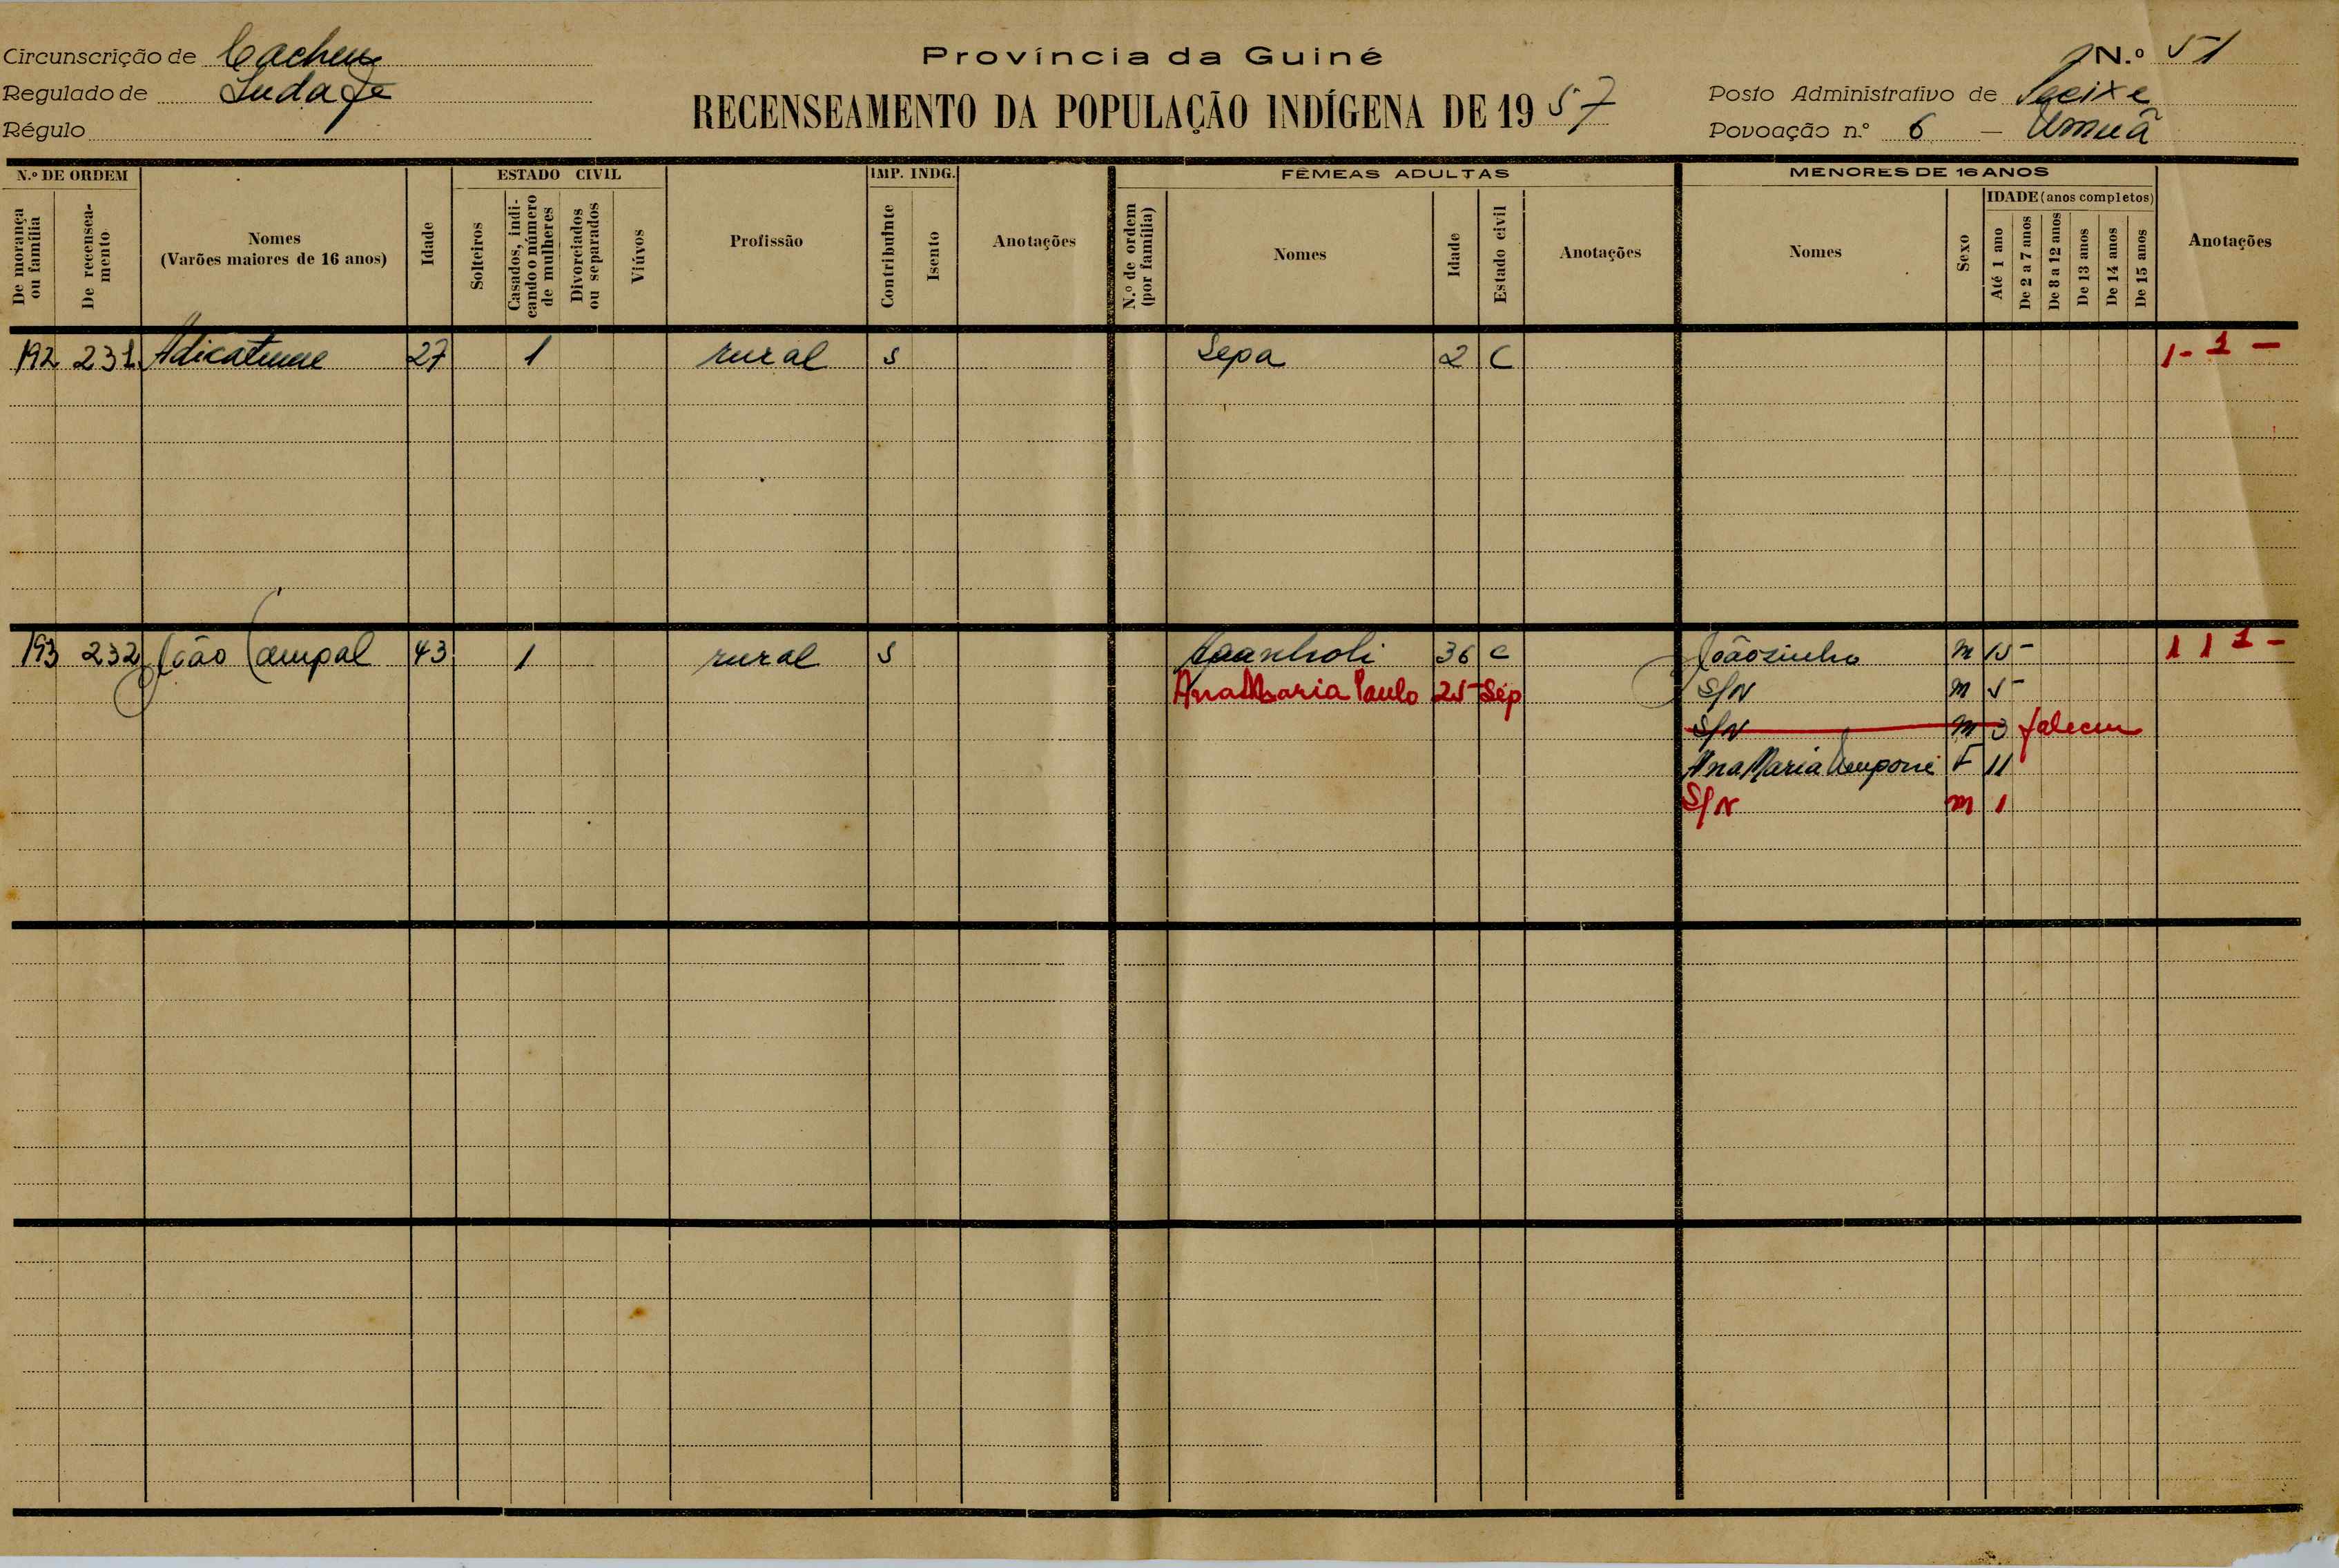 Província da Guiné
Circunscrição de Cacheu
N.º 51
Regulado de
RECENSEAMENTO DA POPULAÇÃO INDÍGENA DE 1957
Posto Administrativo de
Régulo
Povoação n.º 6 —
N.º DE ORDEM
De morança ou família
De recenseamento
Nomes
(Varões maiores de 16 anos)
Idade
ESTADO CIVIL
Solteiros
Casados, indicando o número de mulheres
Divorciados ou separados
Viúvos
Profissão
IMP. INDG.
Contribuinte
Isento
Anotações
FÊMEAS ADULTAS
N.º de ordem (por família)
Nomes
Idade
Estado civil
Anotações
MENORES DE 16 ANOS
Nomes
Sexo
IDADE (anos completos)
Até 1 ano
De 2 a 7 anos
De 8 a 12 anos
De 13 anos
De 14 anos
De 15 anos
Anotações
192 231 27 1 rural S Sepa 2 C 1 - 1 -
193 232 João Campal 43 1 rural S 36 C Joãozinho m 15 - 1 1 1 -
Ana Maria Paulo 25 Sep S/N m 5 -
S/N m 3 faleceu
Ana Maria F 11
S/N m 1